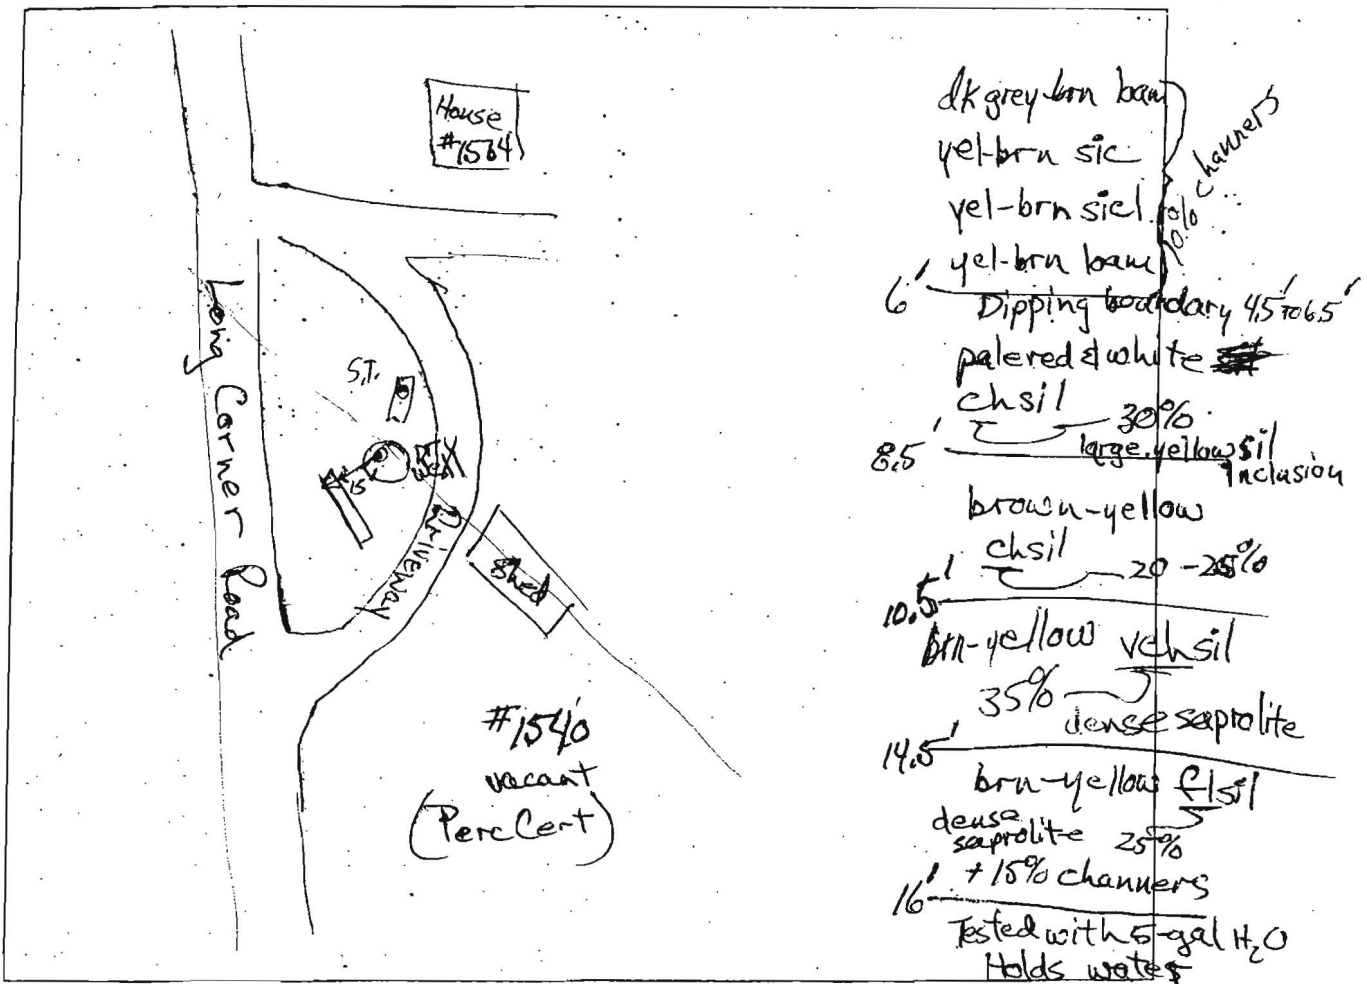 House
#1564
Long Corner Road
S.T.
15'
Driveway
Shed
#1540
vacant
(Perc Cert)
dk grey-brn loam
yel-brn sic
yel-brn sicl
yel-brn loam
10% channers
6'
Dipping boundary 4.5' to 6.5'
pale red & white
chsil
30%
8.5'
large yellow sil
inclusion
brown-yellow
chsil
20-25%
10.5'
brn-yellow vchsil
35%
dense saprolite
14.5'
brn-yellow flsil
dense
saprolite 25%
+15% channers
16'
Tested with 5-gal H2O
Holds water